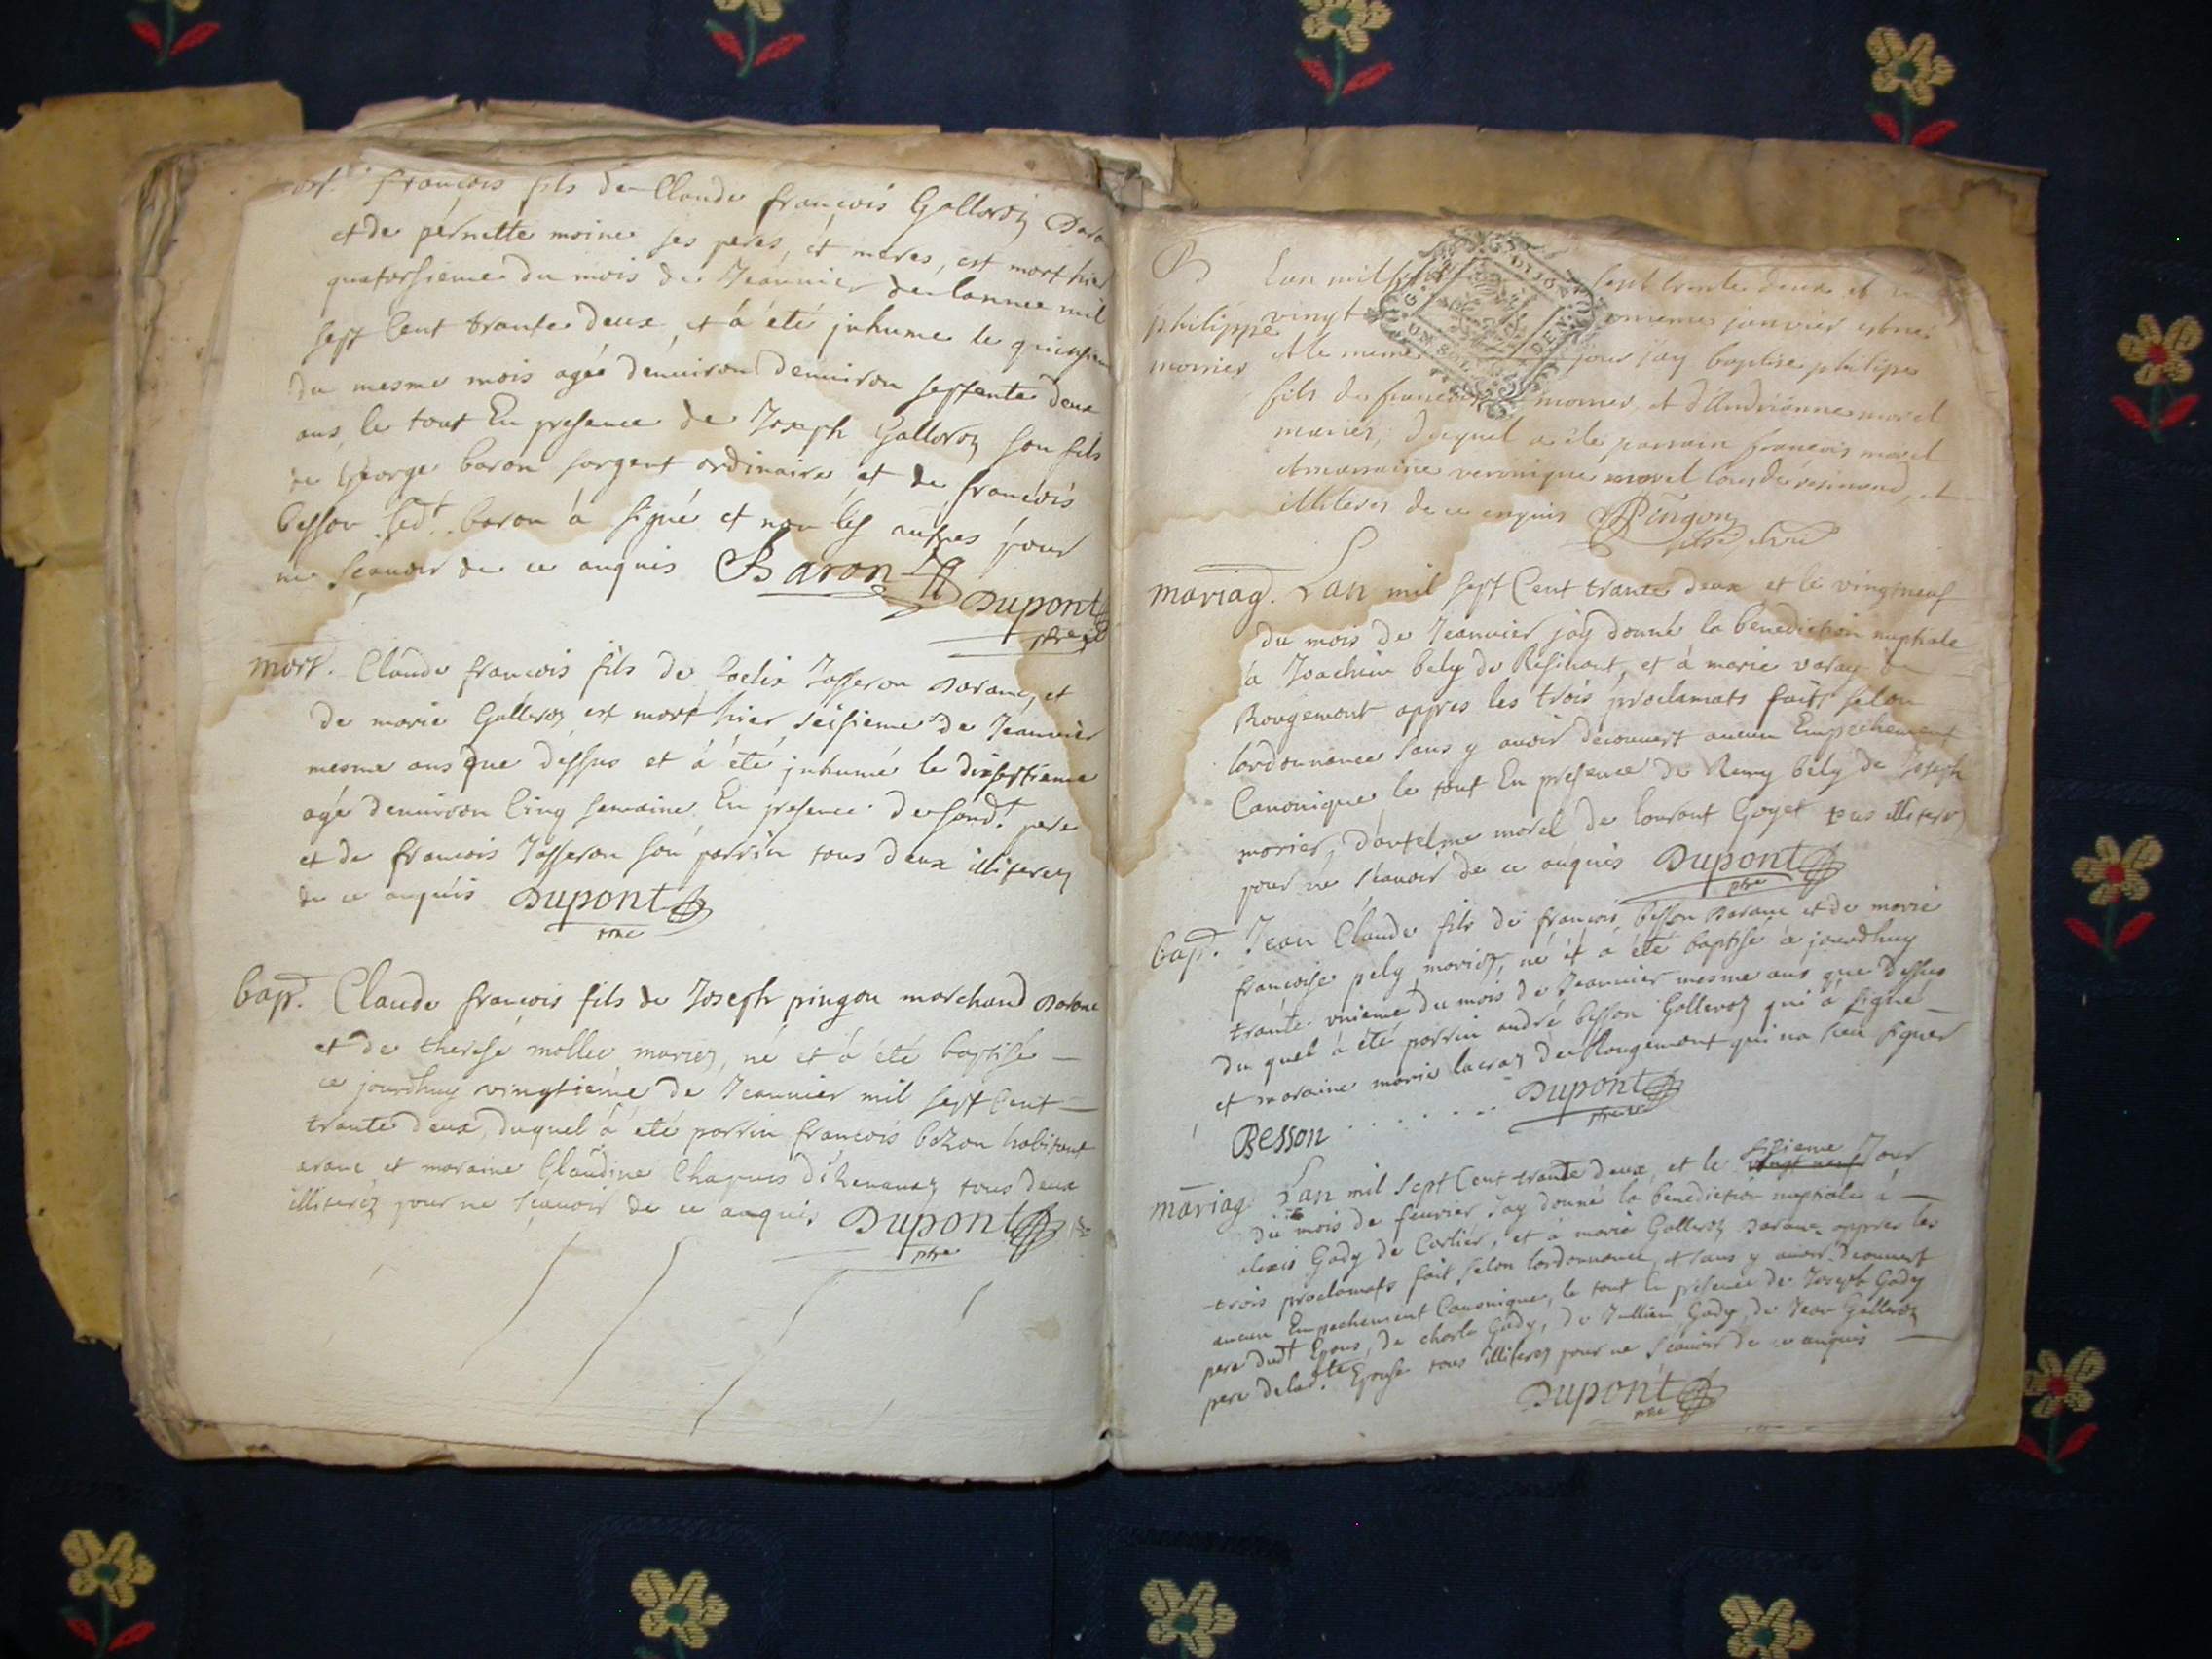 françois fils de Claude françois Galleroz
et de pernette moine ses peres, et meres, est mort hier
quatorsieme du mois de Jeanvier de lannee mil
sept Cent trante deux, et à été inhume le quinsieme
du mesme mois agée denuiron denuiron septente deux
ans, le tout En presence de Joseph Galleroz son fils
de George baron sergent ordinaire et de françois
besson led.t baron à signé et non les autres pour
ne scauoir de ce anquis Baron Dupont
ptre
mort. Claude francois fils de Josseron Darane, et
de marie Galleroz est mort hier seisieme de Jeanvier
mesme ans que dessus et à été inhumé le dixseptieme
agé denuiron Cinq semaine En presence de sond.t pere
et de francois Josseron son parrin tous deux illiterez
de ce anquis Dupont
ptre
bap. Claude françois fils de Joseph pingon marchand Darane
et de therese mollie mariez, né et à été baptisé
ce jourdhuy vingtieme de Jeanvier mil sept Cent
trante deux, duquel à été parrin françois bozon habitant
arane et maraine Claudine Chapuis tous deux
illiterez pour ne scauoir de ce anquis Dupont
ptre
Lan mil sept trente deux et
philippe vingt janvier est né
monier et le meme jour jay baptise philipe
fils de francois monier, et d'Andrianne morel
mariés, duquel a ete parrain françois morel
et marraine veronique morel tous de resinand, et
illiteres de ce enquis Pingon
mariag. Lan mil sept Cent trante deux et le vingtneuf
du mois de Jeanvier jay donné la benediction nuptiale
à Joachim bely de Resinant, et à marie varay de
Rougemont appres les trois proclamats fait selon
lordonnance sans y auoir decouuert aucun Empechement
Canonique le tout En presence de Remy bely de Joseph
monier, dantelme morel de lourant Goyet tous illiterez
pour ne scauoir de ce anquis Dupont
ptre
bap. Jean Claude fils de françois besson Darane et de marie
françoise pely mariez, né et à été baptisé à jourdhuy
trante unieme du mois de Jeanvier mesme ans que dessus
du quel à été parrin andré besson Galleroz qui à signé
et maraine marie lacraz de Rougemont qui na sceu signer
Besson . . . . . . Dupont
ptre
mariag Lan mil sept Cent trante deux, et le vingt neuf sisieme Jour
du mois de feurier Jay donné la benediction nuptiale à
alexis Gody de Corlier, et à marie Galleroz Darane appres les
trois proclamats fait selon lordonnance, et sans y auoir decouuert
aucun Empechement Canonique, le tout En presence de Joseph Gody
pere dud.t Epous, de charle Gody, de Jullien Gody, de Jean Galleroz
pere delad.te Epouse tous illiterez pour ne scauoir de ce anquis
Dupont
ptre